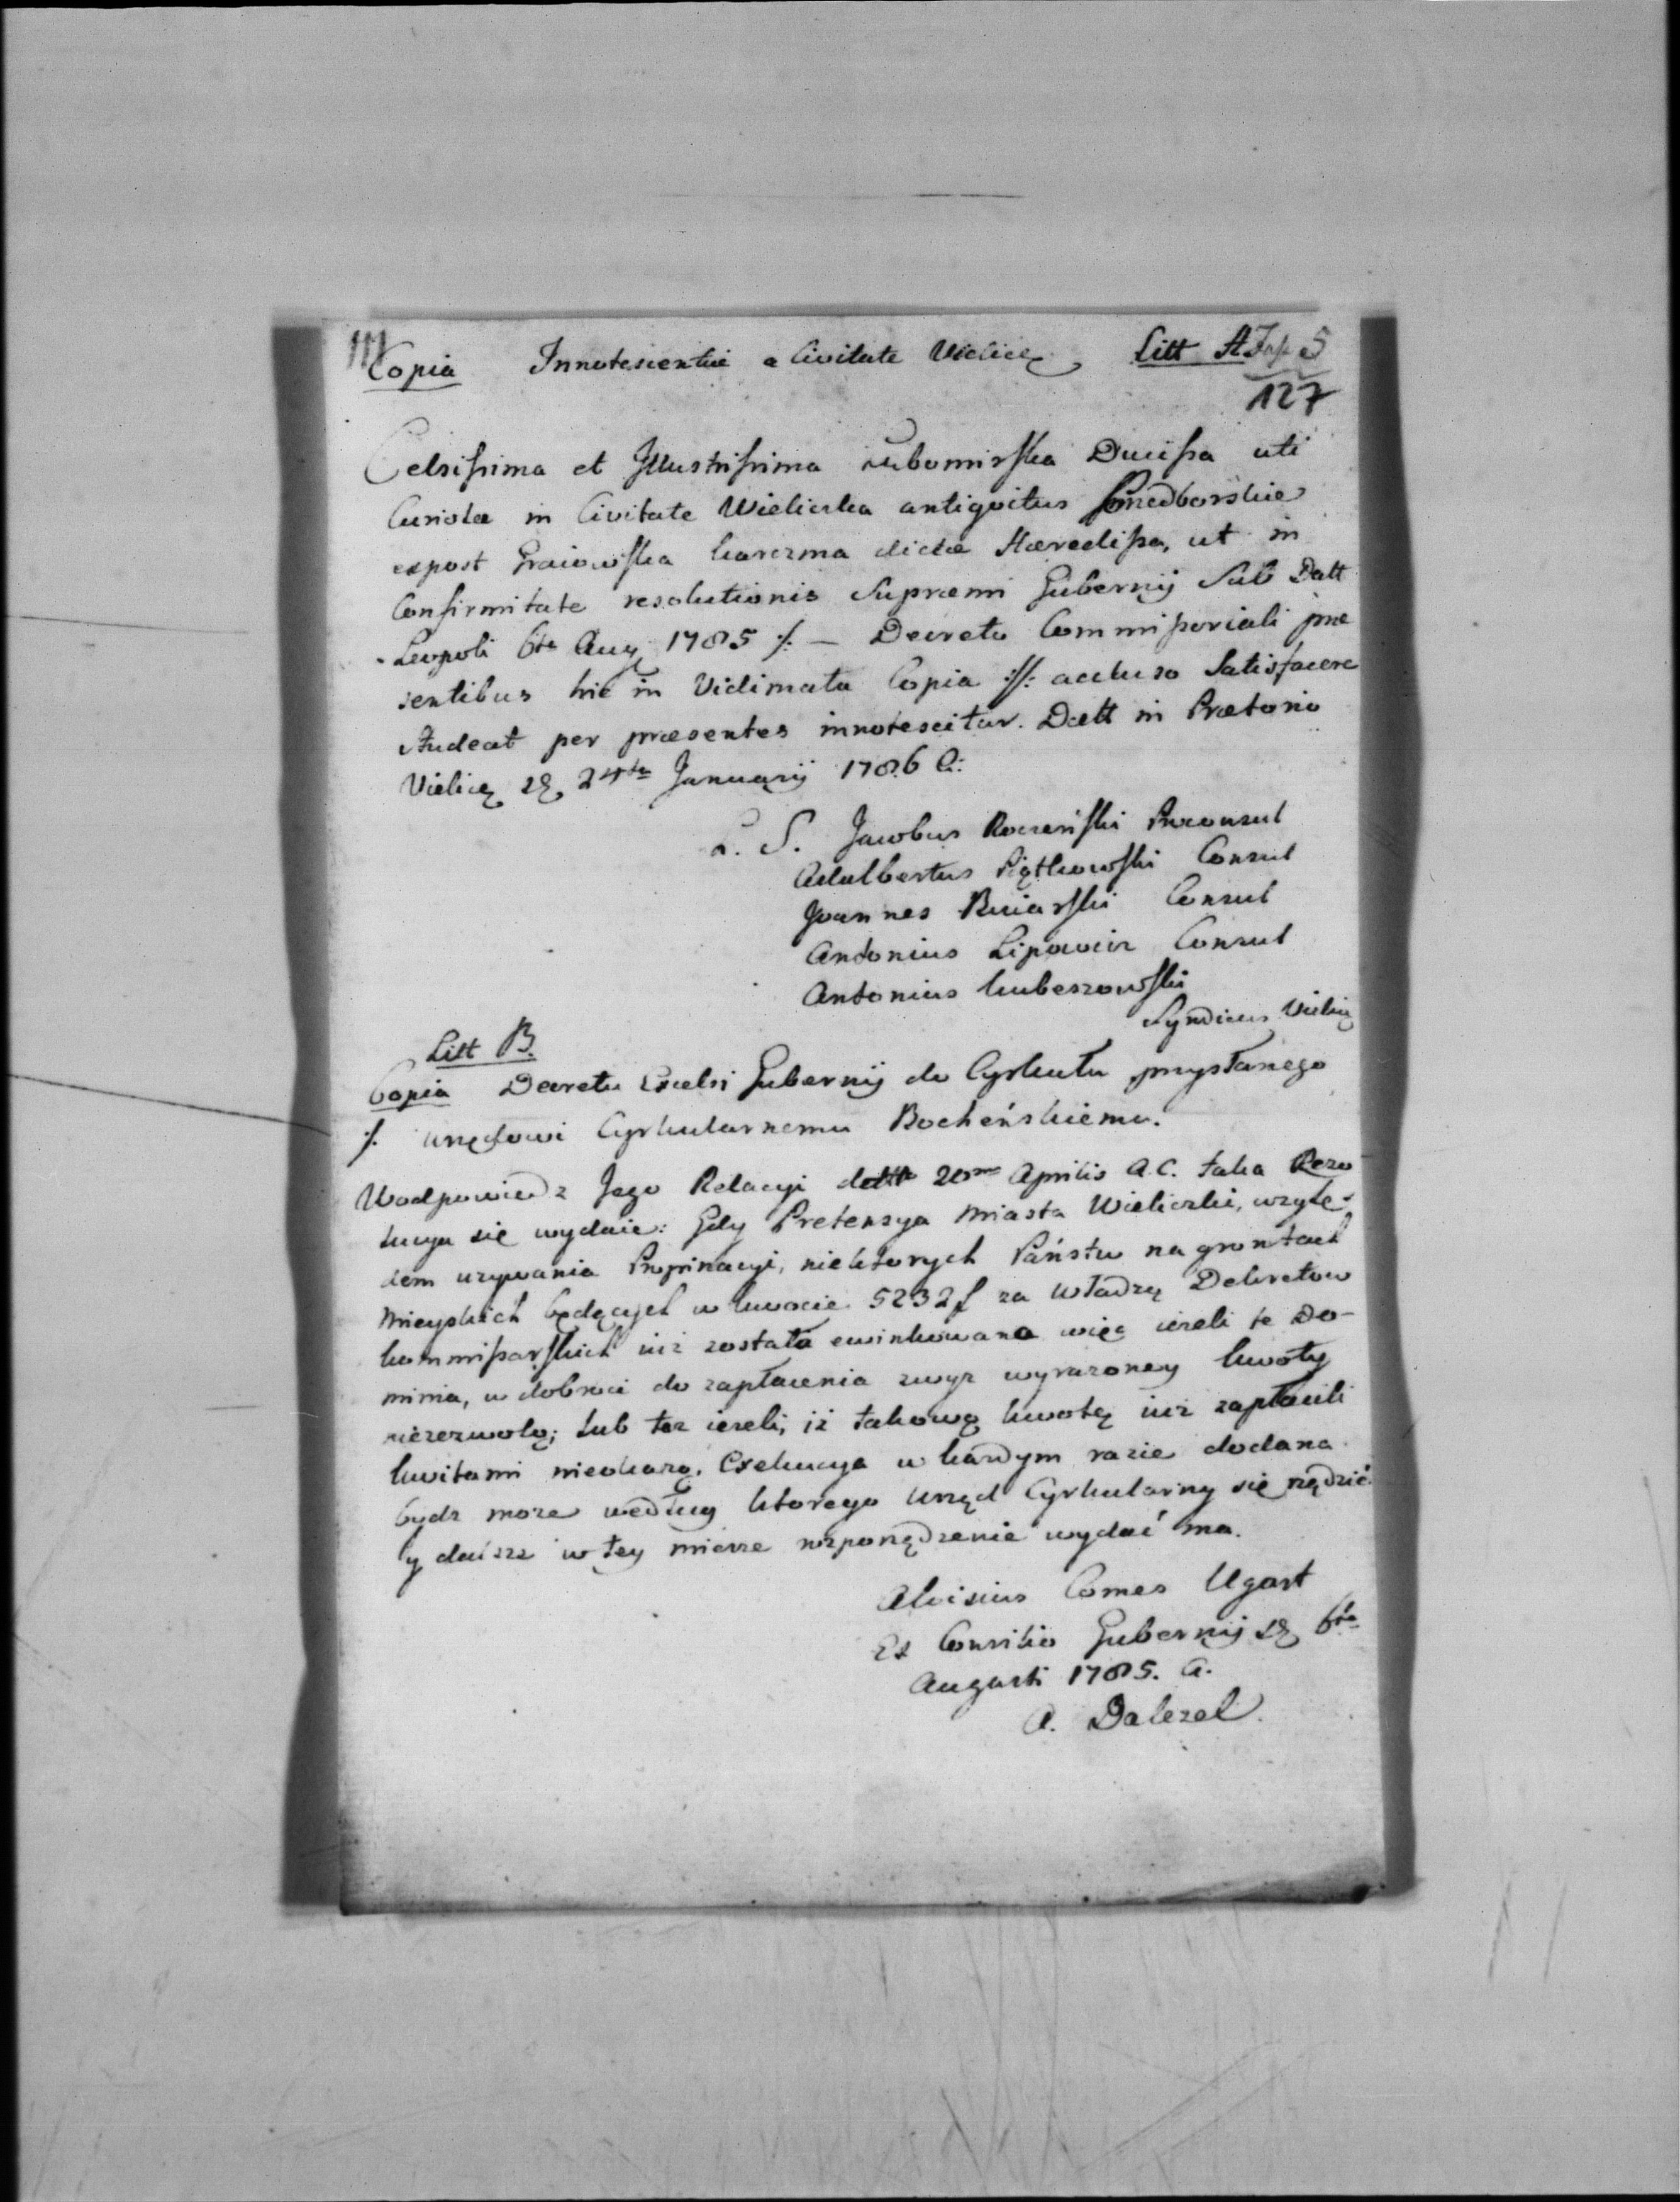 Copia Innotescentiæ a Civitate Vielicę Litt A Fas 5
127
Celsissima et Illustrissima Lubomirska Ducissa uti
Curiolæ in Civitate Wieliczka antiquitus Przedborskie
expost Graiowska karczma dictæ Hæredissa, ut in
Confirmitate resolutionis Supræmi Gubernij Sub Datt
Leopoli 6ta Aug 1785 ·/. — Decreto Commissoriali præ
sentibus hic in Vidimata Copia ·/: accluso Satisfacere
studeat per præsentes innotescitur. Datt in Prætorio
Vielicę 24ta Januarij 1786 A:
L. S. Jacobus Roczeński Proconsul
Adalbertus Piątkowski Consul
Joannes Buiarski Consul
Antonius Lipowicz Consul
Antonius Kubeszowski
Syndicus Vielic
Litt B.
Copia Decretu Excelsi Gubernij do Cyrkułu przysłanego
·/. Urzędowi Cyrkularnemu Bocheńskiemu.
Wodpowiedz Jego Relacyi dtto 20ma Aprilis A.C. taka Rezo
lucya się wydaie: Gdy Pretensya Miasta Wieliczki, wzglę-
dem uzywania Propinacyi, niektorych Państw na grontach
Mieyskich będących w kwocie 5232 f za władzą Dekretow
kommissarskich iuż została ewinkowana więc ieżeli te Do-
minia, w dobroci do zapłacenia zwyż wyrazoney kwoty
niezezwolą; lub też ieżeli, iż takową kwotę iuż zapłacili
kwitami nieokażą, Exekucya w każdym razie dodana
bydz może według ktorego Urząd Cyrkularny się rządzić
y dalsze w tey mierze rozporządzenie wydać ma.
Aloisius Comes Ugart
Ex Consilio Gubernij 6ta
Augusti 1785. A.
A. Dalezel